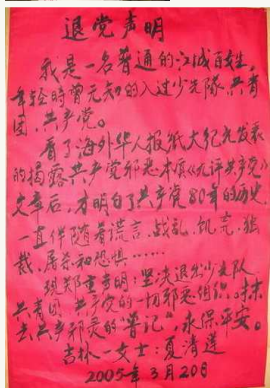 退党声明
我是一名普通的江城百姓,
年轻时曾无知的入过少先隊,共青
团,共产党。
看了海外华人报纸大纪元发表
的揭露共产党邪恶本质《九评共产党》
文章后,才明白了共产党80年的历史
一直伴随着谎言、战乱、饥荒、独
裁、屠杀和恐惧……
现郑重声明:坚决退出少先队
共青团、共产党的一切邪恶组织。抹
去共产邪灵的“兽记”,永保平安。
吉林一女士:夏清莲
2005年3月20日